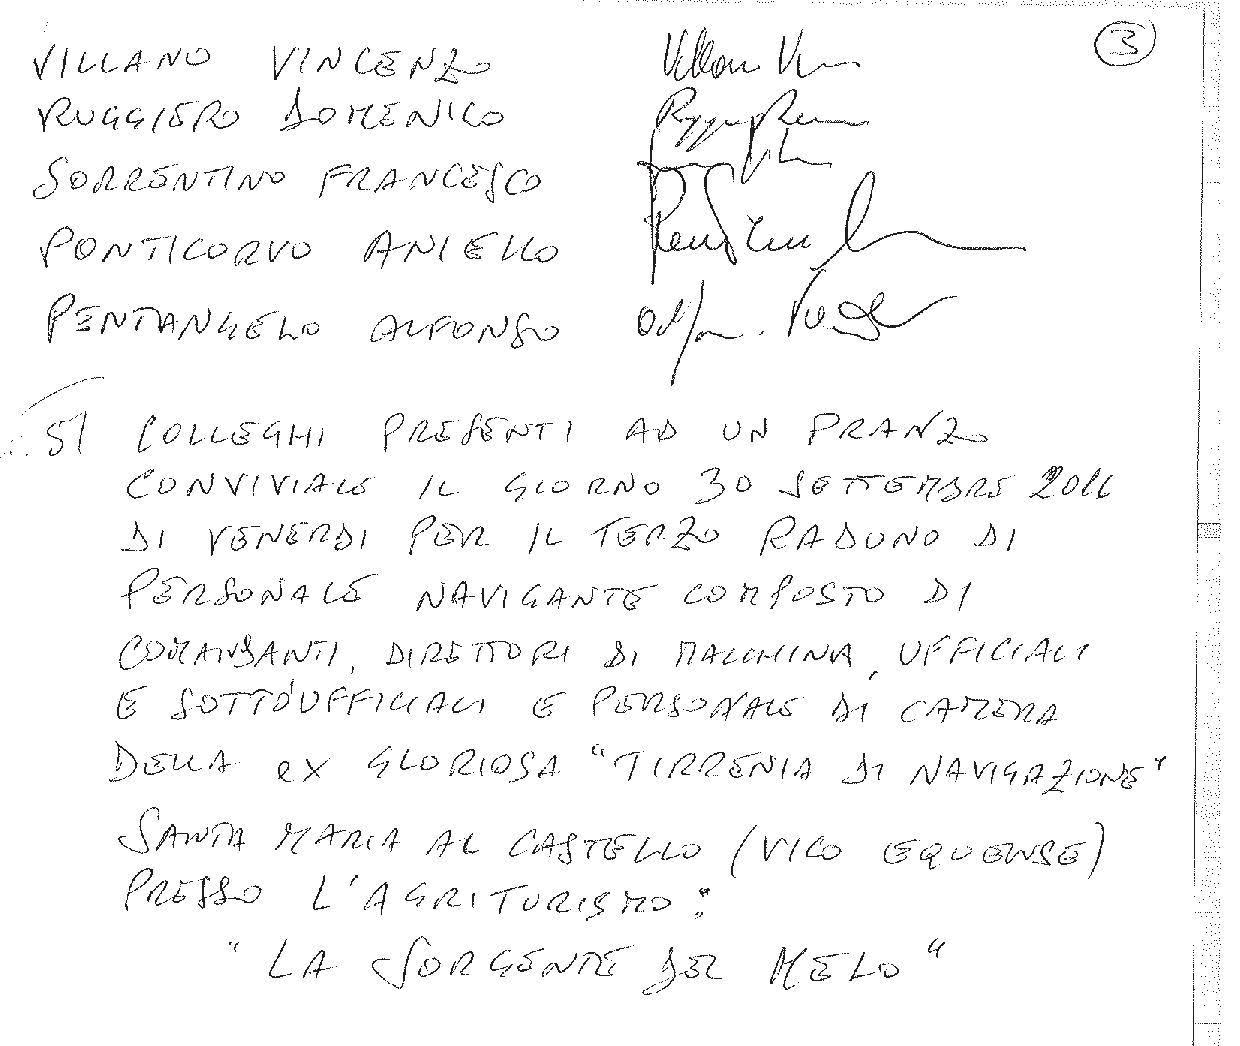 3
VILLANO VINCENZO
RUGGIERO DOMENICO
SORRENTINO FRANCESCO
PONTICORVO ANIELLO
PENTANGELO ALFONSO
51 COLLEGHI PRESENTI AD UN PRANZO
CONVIVIALE IL GIORNO 30 SETTEMBRE 2016
DI VENERDI PER IL TERZO RADUNO DI
PERSONALE NAVIGANTE COMPOSTO DI
COMANDANTI, DIRETTORI DI MACCHINA, UFFICIALI
E SOTTO'UFFICIALI E PERSONALE DI CAMERA
DELLA EX GLORIOSA "TIRRENIA DI NAVIGAZIONE"
SANTA MARIA AL CASTELLO (VICO EQUENSE)
PRESSO L'AGRITURISMO:
"LA SORGENTE DEL MELO"